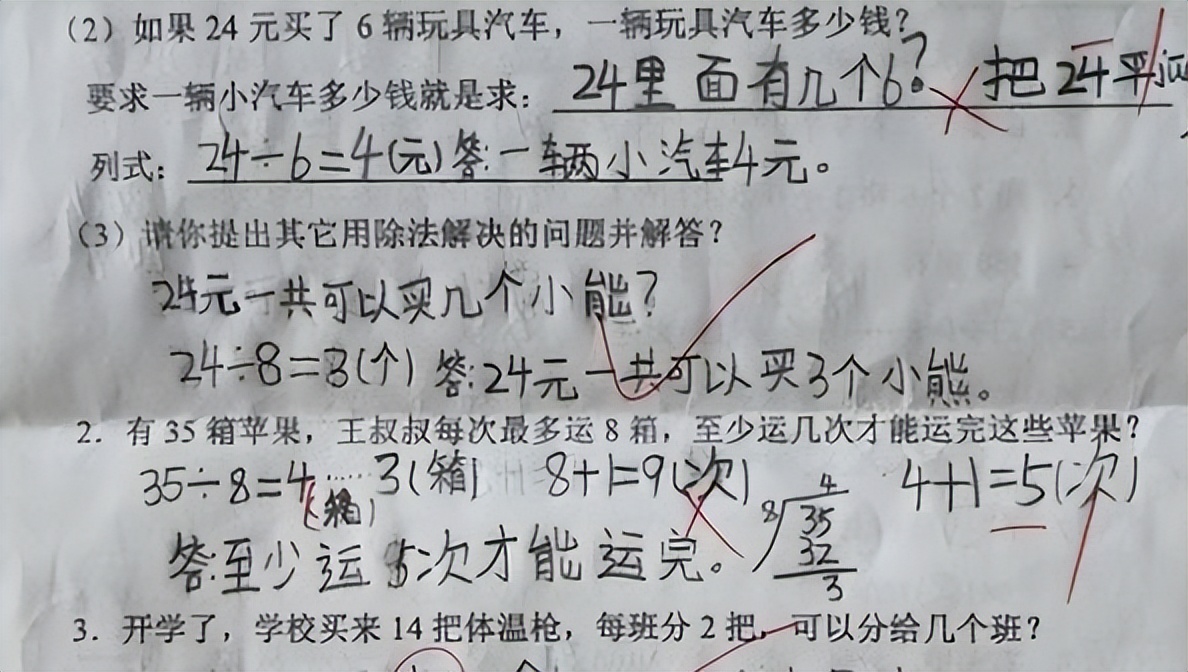 (2) 如果 24 元买了 6 辆玩具汽车，一辆玩具汽车多少钱？
要求一辆小汽车多少钱就是求：24里面有几个6? 把24平
列式：24÷6=4(元) 答:一辆小汽车4元。
(3) 请你提出其它用除法解决的问题并解答？
24元一共可以买几个小能?
24÷8=3(个) 答:24元一共可以买3个小熊。
2. 有 35 箱苹果，王叔叔每次最多运 8 箱，至少运几次才能运完这些苹果？
35÷8=4……3(箱) 8+1=9(次) 4+1=5(次)
(箱)
4
8 35
32
3
答:至少运5次才能运完。
3. 开学了，学校买来 14 把体温枪，每班分 2 把，可以分给几个班？